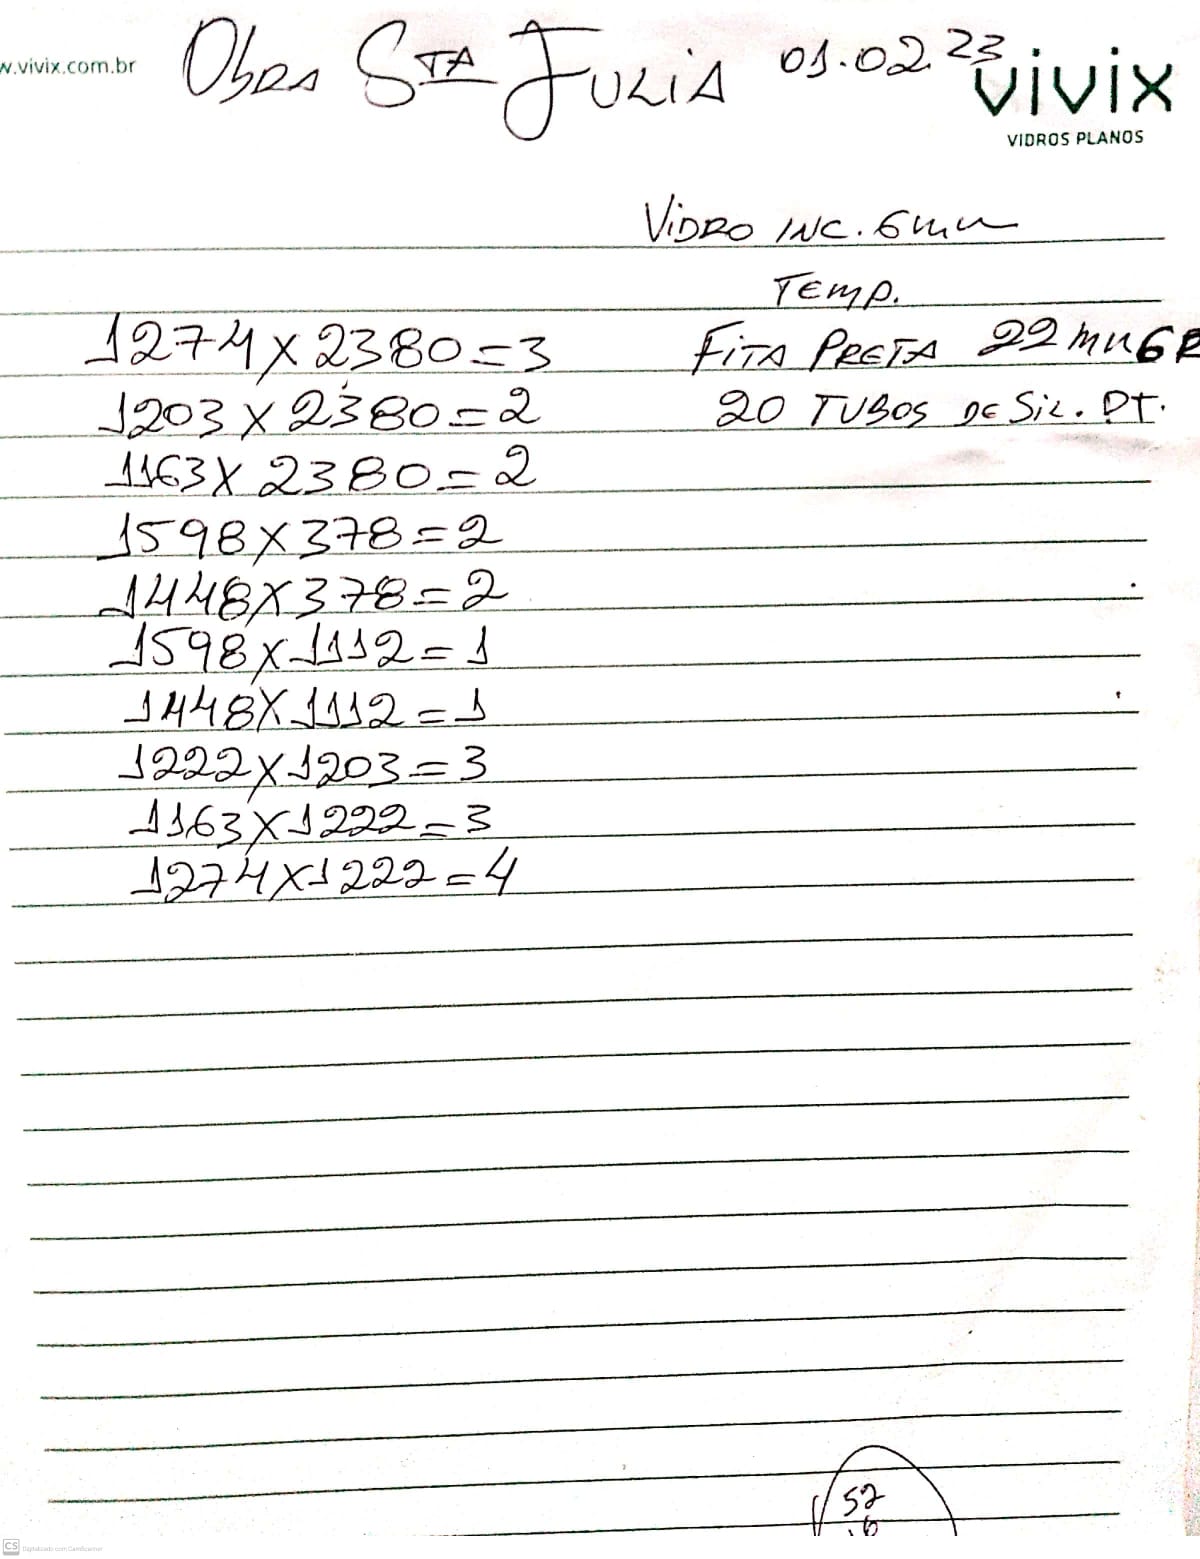 w.vivix.com.br
Obra Sta Julia 01.02.23
vivix
VIDROS PLANOS
VIDRO INC. 6mm
TEMP.
1274 x 2380 = 3
FITA PRETA 22 mm 6R
1203 x 2380 = 2
20 TUBOS DE SIL. PT.
1163 x 2380 = 2
1598 x 378 = 2
1448 x 378 = 2
1598 x 1112 = 1
1448 x 1112 = 1
1222 x 1203 = 3
1163 x 1222 = 3
1274 x 1222 = 4
52
CS Digitalizado com CamScanner